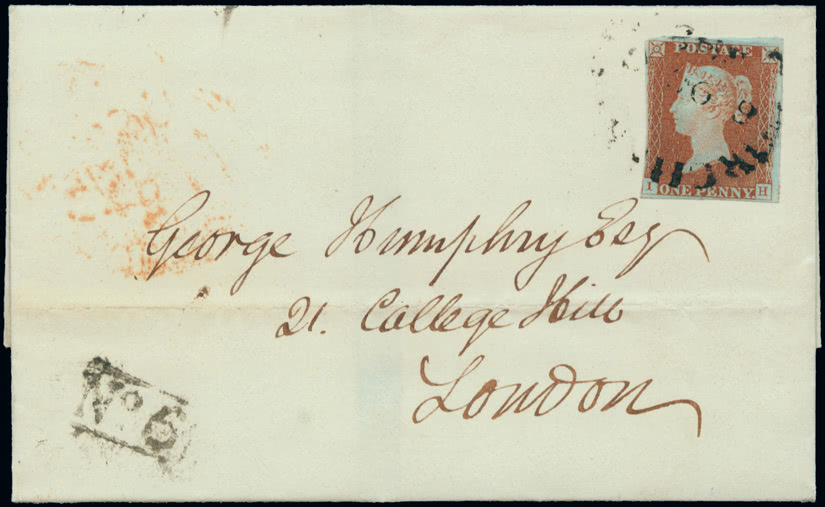 POSTAGE
I H
ONE PENNY
George Humphry Esq
21. College Hill
London
No 6